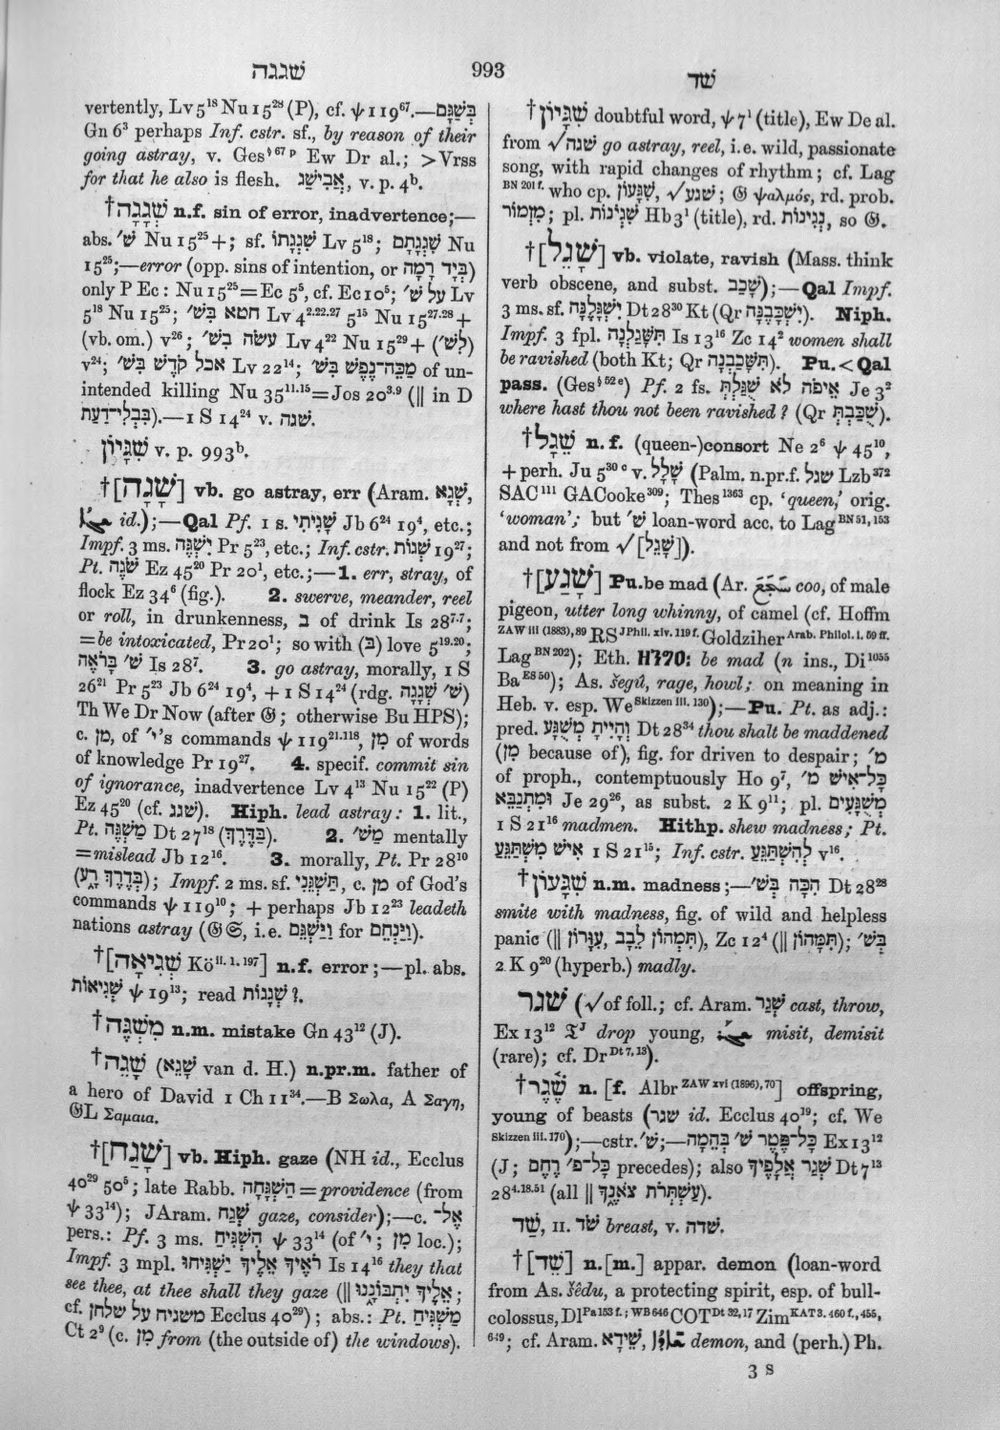 שׁגגה 993 שׁד
vertently, Lv 5¹⁸ Nu 15²⁸ (P), cf. ψ 119⁶⁷.—בְּשַׁגָּם
Gn 6³ perhaps Inf. cstr. sf., by reason of their
going astray, v. Ges§ 67 p Ew Dr al.; >Vrss
for that he also is flesh. אֲבִישַׁג, v. p. 4ᵇ.
†שְׁגָגָה n.f. sin of error, inadvertence;—
abs. שׁ׳ Nu 15²⁵+; sf. שִׁגְגָתוֹ Lv 5¹⁸; שִׁגְגָתָם Nu
15²⁵;—error (opp. sins of intention, or בְּיָד רָמָה)
only P Ec: Nu 15²⁵=Ec 5⁵, cf. Ec 10⁵; עַל שׁ׳ Lv
5¹⁸ Nu 15²⁵; חטא בִּשׁ׳ Lv 4²·²²·²⁷ 5¹⁵ Nu 15²⁷·²⁸+
(vb. om.) v²⁶; עשׂה בִשׁ׳ Lv 4²² Nu 15²⁹+ (לִשׁ׳)
v²⁴; אכל קֹדֶשׁ בִּשׁ׳ Lv 22¹⁴; מַכֵּה־נֶפֶשׁ בִּשׁ׳ of un-
intended killing Nu 35¹¹·¹⁵=Jos 20³·⁹ (‖ in D
בִּבְלִי־דַעַת).—1 S 14²⁴ v. שׁגה.
שִׁגָּיוֹן v. p. 993ᵇ.
†[שָׁגָה] vb. go astray, err (Aram. שְׁגָא,
id.);—Qal Pf. 1 s. שָׁגִיתִי Jb 6²⁴ 19⁴, etc.;
Impf. 3 ms. יִשְׁגֶּה Pr 5²³, etc.; Inf. cstr. שְׁגוֹת 19²⁷;
Pt. שֹׁגֶה Ez 45²⁰ Pr 20¹, etc.;—1. err, stray, of
flock Ez 34⁶ (fig.). 2. swerve, meander, reel
or roll, in drunkenness, ב of drink Is 28⁷·⁷;
=be intoxicated, Pr 20¹; so with (ב) love 5¹⁹·²⁰;
שׁ׳ בָּרֹאֶה Is 28⁷. 3. go astray, morally, 1 S
26²¹ Pr 5²³ Jb 6²⁴ 19⁴, +1 S 14²⁴ (rdg. שָׁגָה שְׁגָגָה)
Th We Dr Now (after 𝔊; otherwise Bu HPS);
c. מִן, of י׳'s commands ψ 119²¹·¹¹⁸, מִן of words
of knowledge Pr 19²⁷. 4. specif. commit sin
of ignorance, inadvertence Lv 4¹³ Nu 15²² (P)
Ez 45²⁰ (cf. שׁגג). Hiph. lead astray: 1. lit.,
Pt. מַשְׁגֶּה Dt 27¹⁸ (בַּדָּרֶךְ). 2. מַשׁ׳ mentally
=mislead Jb 12¹⁶. 3. morally, Pt. Pr 28¹⁰
(בְּדֶרֶךְ רָע); Impf. 2 ms. sf. תַּשְׁגֵּנִי, c. מִן of God's
commands ψ 119¹⁰; +perhaps Jb 12²³ leadeth
nations astray (𝔊 𝔖, i.e. וַיַּשְׁגֵּם for וַיַּנְחֵם).
†[שְׁגִיאָה Kö II. 1. 197] n.f. error;—pl. abs.
שְׁגִיאוֹת ψ 19¹³; read שְׁגָגוֹת ?.
†מִשְׁגֶּה n.m. mistake Gn 43¹² (J).
†שָׁגֵה (שָׁגֵא van d. H.) n.pr.m. father of
a hero of David 1 Ch 11³⁴.—B Σωλα, A Σαγη,
𝔊L Σαμαια.
†[שָׁגַח] vb. Hiph. gaze (NH id., Ecclus
40²⁹ 50⁵; late Rabb. הַשְׁגָּחָה=providence (from
ψ 33¹⁴); JAram. שְׁגַח gaze, consider);—c. אֶל־
pers.: Pf. 3 ms. הִשְׁגִּיחַ ψ 33¹⁴ (of י׳; מִן loc.);
Impf. 3 mpl. רֹאֶיךָ אֵלֶיךָ יַשְׁגִּיחוּ Is 14¹⁶ they that
see thee, at thee shall they gaze (‖ אֵלֶיךָ יִתְבּוֹנָנוּ;
cf. משגיח על שלחן Ecclus 40²⁹); abs.: Pt. מַשְׁגִּיחַ
Ct 2⁹ (c. מִן from (the outside of) the windows).
†שִׁגָּיוֹן doubtful word, ψ 7¹ (title), Ew De al.
from √שׁגה go astray, reel, i.e. wild, passionate
song, with rapid changes of rhythm; cf. Lag
BN 201 f. who cp. שִׁגָּעוֹן, √שׁגע; 𝔊 ψαλμός, rd. prob.
מִזְמוֹר; pl. שִׁגְיֹנוֹת Hb 3¹ (title), rd. נְגִינוֹת, so 𝔊.
†[שָׁגֵל] vb. violate, ravish (Mass. think
verb obscene, and subst. שָׁכַב);—Qal Impf.
3 ms. sf. יִשְׁגָּלֶנָּה Dt 28³⁰ Kt (Qr יִשְׁכָּבֶנָּה). Niph.
Impf. 3 fpl. תִּשָּׁגַלְנָה Is 13¹⁶ Zc 14² women shall
be ravished (both Kt; Qr תִּשָּׁכַבְנָה). Pu. < Qal
pass. (Ges§ 52 e) Pf. 2 fs. אֵיפֹה לֹא שֻׁגַּלְתְּ Je 3²
where hast thou not been ravished? (Qr שֻׁכַּבְתְּ).
†שֵׁגָל n. f. (queen-)consort Ne 2⁶ ψ 45¹⁰,
+perh. Ju 5³⁰ ᶜ v. שָׁלָל (Palm. n.pr.f. שגל Lzb³⁷²
SAC¹¹¹ GACooke³⁰⁹; Thes¹³⁶³ cp. 'queen,' orig.
'woman'; but שׁ׳ loan-word acc. to Lag BN 51, 153
and not from √[שָׁגֵל]).
†[שָׁגַע] Pu. be mad (Ar. سَجَعَ coo, of male
pigeon, utter long whinny, of camel (cf. Hoffm
ZAW iii (1883), 89 RS J Phil. xiv. 119 f. Goldziher Arab. Philol. i. 59 ff.
Lag BN 202); Eth. be mad (n ins., Di¹⁰⁵⁵
Ba ES 50); As. šegû, rage, howl; on meaning in
Heb. v. esp. We Skizzen iii. 130);—Pu. Pt. as adj.:
pred. וְהָיִיתָ מְשֻׁגָּע Dt 28³⁴ thou shalt be maddened
(מִן because of), fig. for driven to despair; מ׳
of proph., contemptuously Ho 9⁷, כָּל־אִישׁ מ׳
וּמִתְנַבֵּא Je 29²⁶, as subst. 2 K 9¹¹; pl. מְשֻׁגָּעִים
1 S 21¹⁶ madmen. Hithp. shew madness; Pt.
אִישׁ מִשְׁתַּגֵּעַ 1 S 21¹⁵; Inf. cstr. לְהִשְׁתַּגֵּעַ v¹⁶.
†שִׁגָּעוֹן n.m. madness;—הִכָּה בְּשׁ׳ Dt 28²⁸
smite with madness, fig. of wild and helpless
panic (‖ תִּמְהוֹן לֵבָב, עִוָּרוֹן), Zc 12⁴ (‖ תִּמָּהוֹן); בְּשׁ׳
2 K 9²⁰ (hyperb.) madly.
שׁגר (√of foll.; cf. Aram. שְׁגַר cast, throw,
Ex 13¹² 𝔗ᴶ drop young, misit, demisit
(rare); cf. Dr Dt 7, 13).
†שֶׁגֶר n. [f. Albr ZAW xvi (1896), 70] offspring,
young of beasts (שגר id. Ecclus 40¹⁹; cf. We
Skizzen iii. 170);—cstr. שׁ׳;—כָּל־פֶּטֶר שׁ׳ בְּהֵמָה Ex 13¹²
(J; כָּל־פ׳ רֶחֶם precedes); also שְׁגַר אֲלָפֶיךָ Dt 7¹³
28⁴·¹⁸·⁵¹ (all ‖ עַשְׁתְּרֹת צֹאנֶךָ).
שַׁד, II. שֹׁד breast, v. שׁדה.
†[שֵׁד] n.[m.] appar. demon (loan-word
from As. šêdu, a protecting spirit, esp. of bull-
colossus, Dl Pa 153 f.; WB 646 COT Dt 32, 17 Zim KAT 3. 460 f., 455,
649; cf. Aram. שֵׁידָא, demon, and (perh.) Ph.
3 S